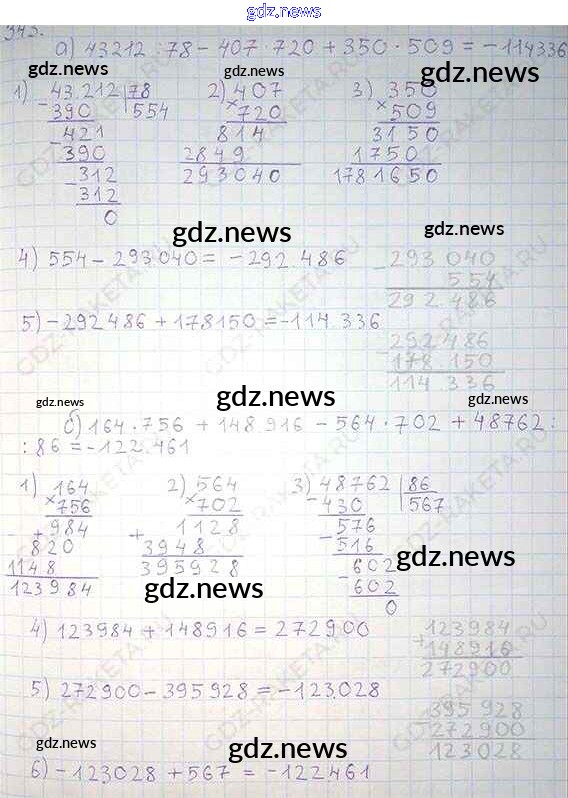 gdz.news
343.
а) 43212 : 78 - 407 · 720 + 350 · 509 = -114336
gdz.news
1) 43212 | 78 2) 407 3) 350
- 390 554 × 720 × 509
421 814 3150
- 390 2849 1750
- 312 293040 1781650
312
0
gdz.news
4) 554 - 293040 = -292 486
- 293 040
554
292 486
5) -292486 + 178150 = -114 336
- 292 486
178 150
114 336
gdz.news gdz.news gdz.news
б) 164 · 756 + 148 916 - 564 · 702 + 48762 :
: 86 = -122 461
1) 164 2) 564 3) 48762 | 86
× 756 × 702 - 430 567
+ 984 + 1128 576
820 3948 - 516
1148 395928 602
123984 - 602
0
gdz.news gdz.news
4) 123984 + 148916 = 272900
+ 123984
148916
272900
5) 272900 - 395928 = -123028
- 395 928
272900
123028
gdz.news gdz.news gdz.news
6) -123028 + 567 = -122461
GDZ-RAKETA.RU